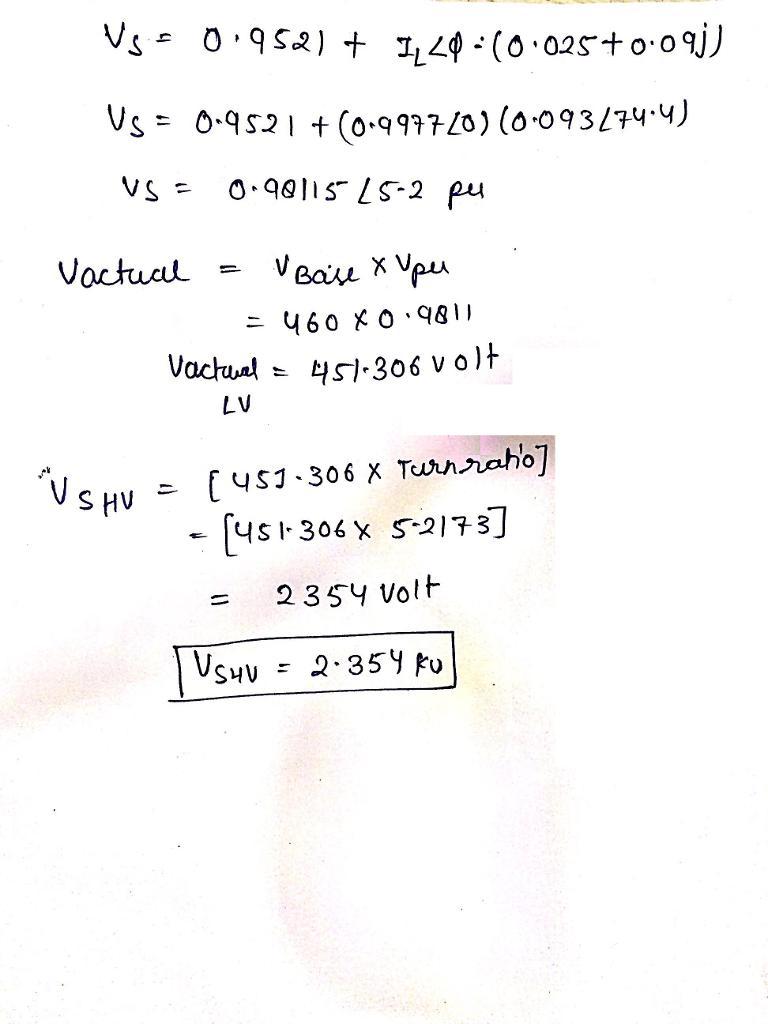 Vs = 0.9521 + IL∠φ · (0.025+0.09j)
Vs = 0.9521 + (0.9977∠0) (0.093∠74.4)
Vs = 0.98115 ∠5.2 pu
Vactual = VBase x Vpu
= 460 x 0.9811
Vactual = 451.306 volt
LV
VSHV = [451.306 x Turnratio]
= [451.306 x 5.2173]
= 2354 Volt
VSHV = 2.354 kv